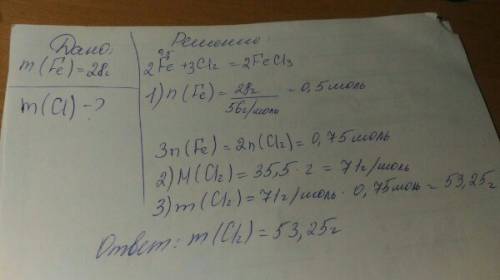 Дано:
m(Fe)=28г
m(Cl)-?
Решение:
0,5
2Fe+3Cl₂=2FeCl₃
1) n(Fe)=28г/56г/моль=0,5моль
3n(Fe)=2n(Cl₂)=0,75моль
2) M(Cl₂)=35,5·2=71г/моль
3) m(Cl₂)=71г/моль·0,75моль=53,25г
Ответ: m(Cl₂)=53,25г